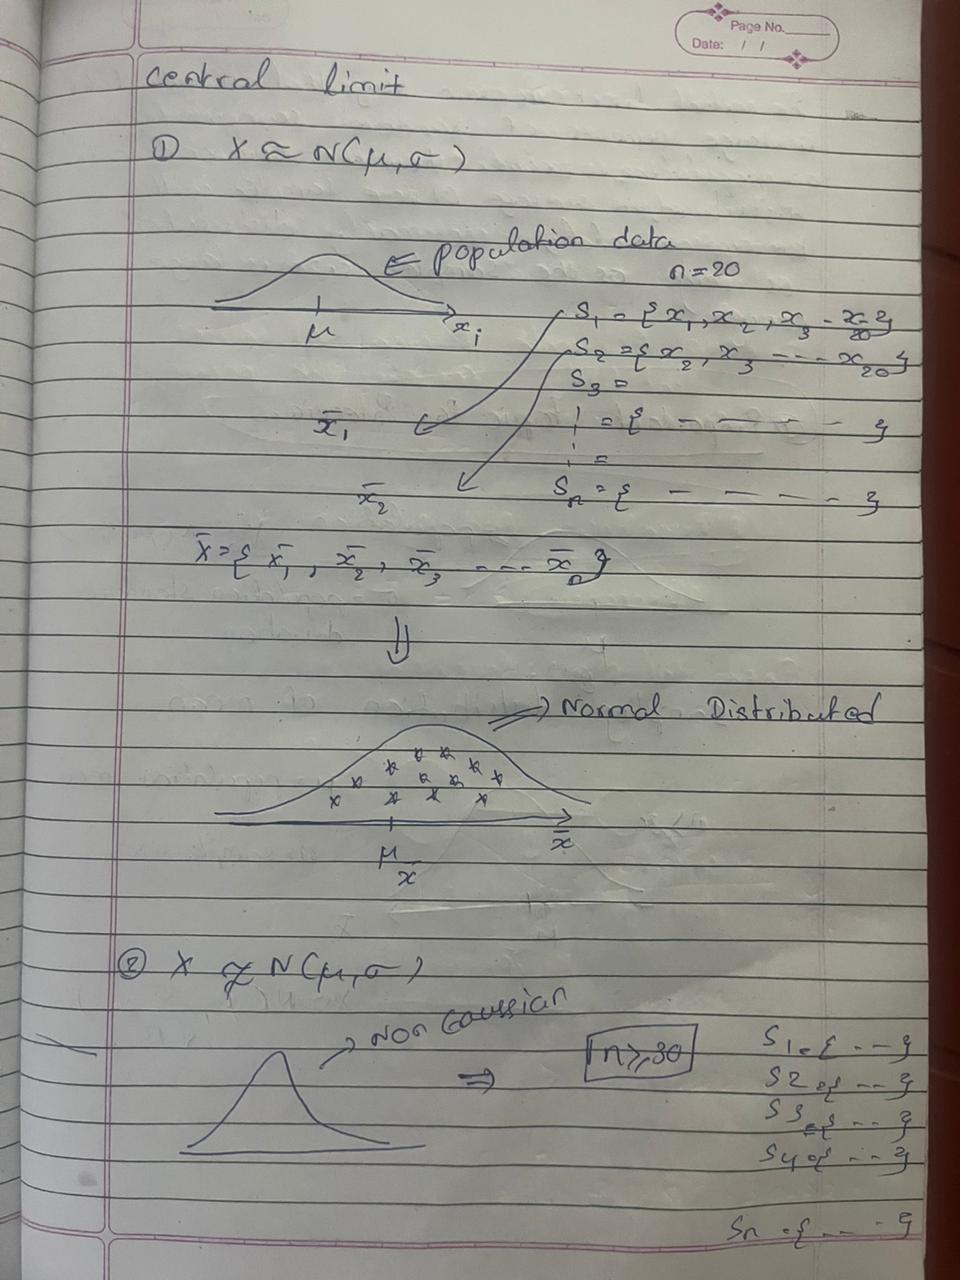 Page No.
Date: / /
central limit
① X ≈ N(μ,σ)
⇐ population data
n = 20
μ
x_i
S_1 = { x_1, x_2, x_3 - x_20 }
S_2 = { x_2, x_3 --- x_20 }
S_3 =
x̄_1
= { - - - - - }
=
x̄_2
S_n = { - - - - }
X̄ = { x̄_1, x̄_2, x̄_3 ---- x̄_n }
⇓
⇒ Normal Distributed
x̄
μ_x̄
② X ≉ N(μ,σ)
→ Non Gaussian
⇒ n ≥ 30
S1 = { -- }
S2 = { -- }
S3 = { -- }
S4 = { -- }
Sn = { --- }